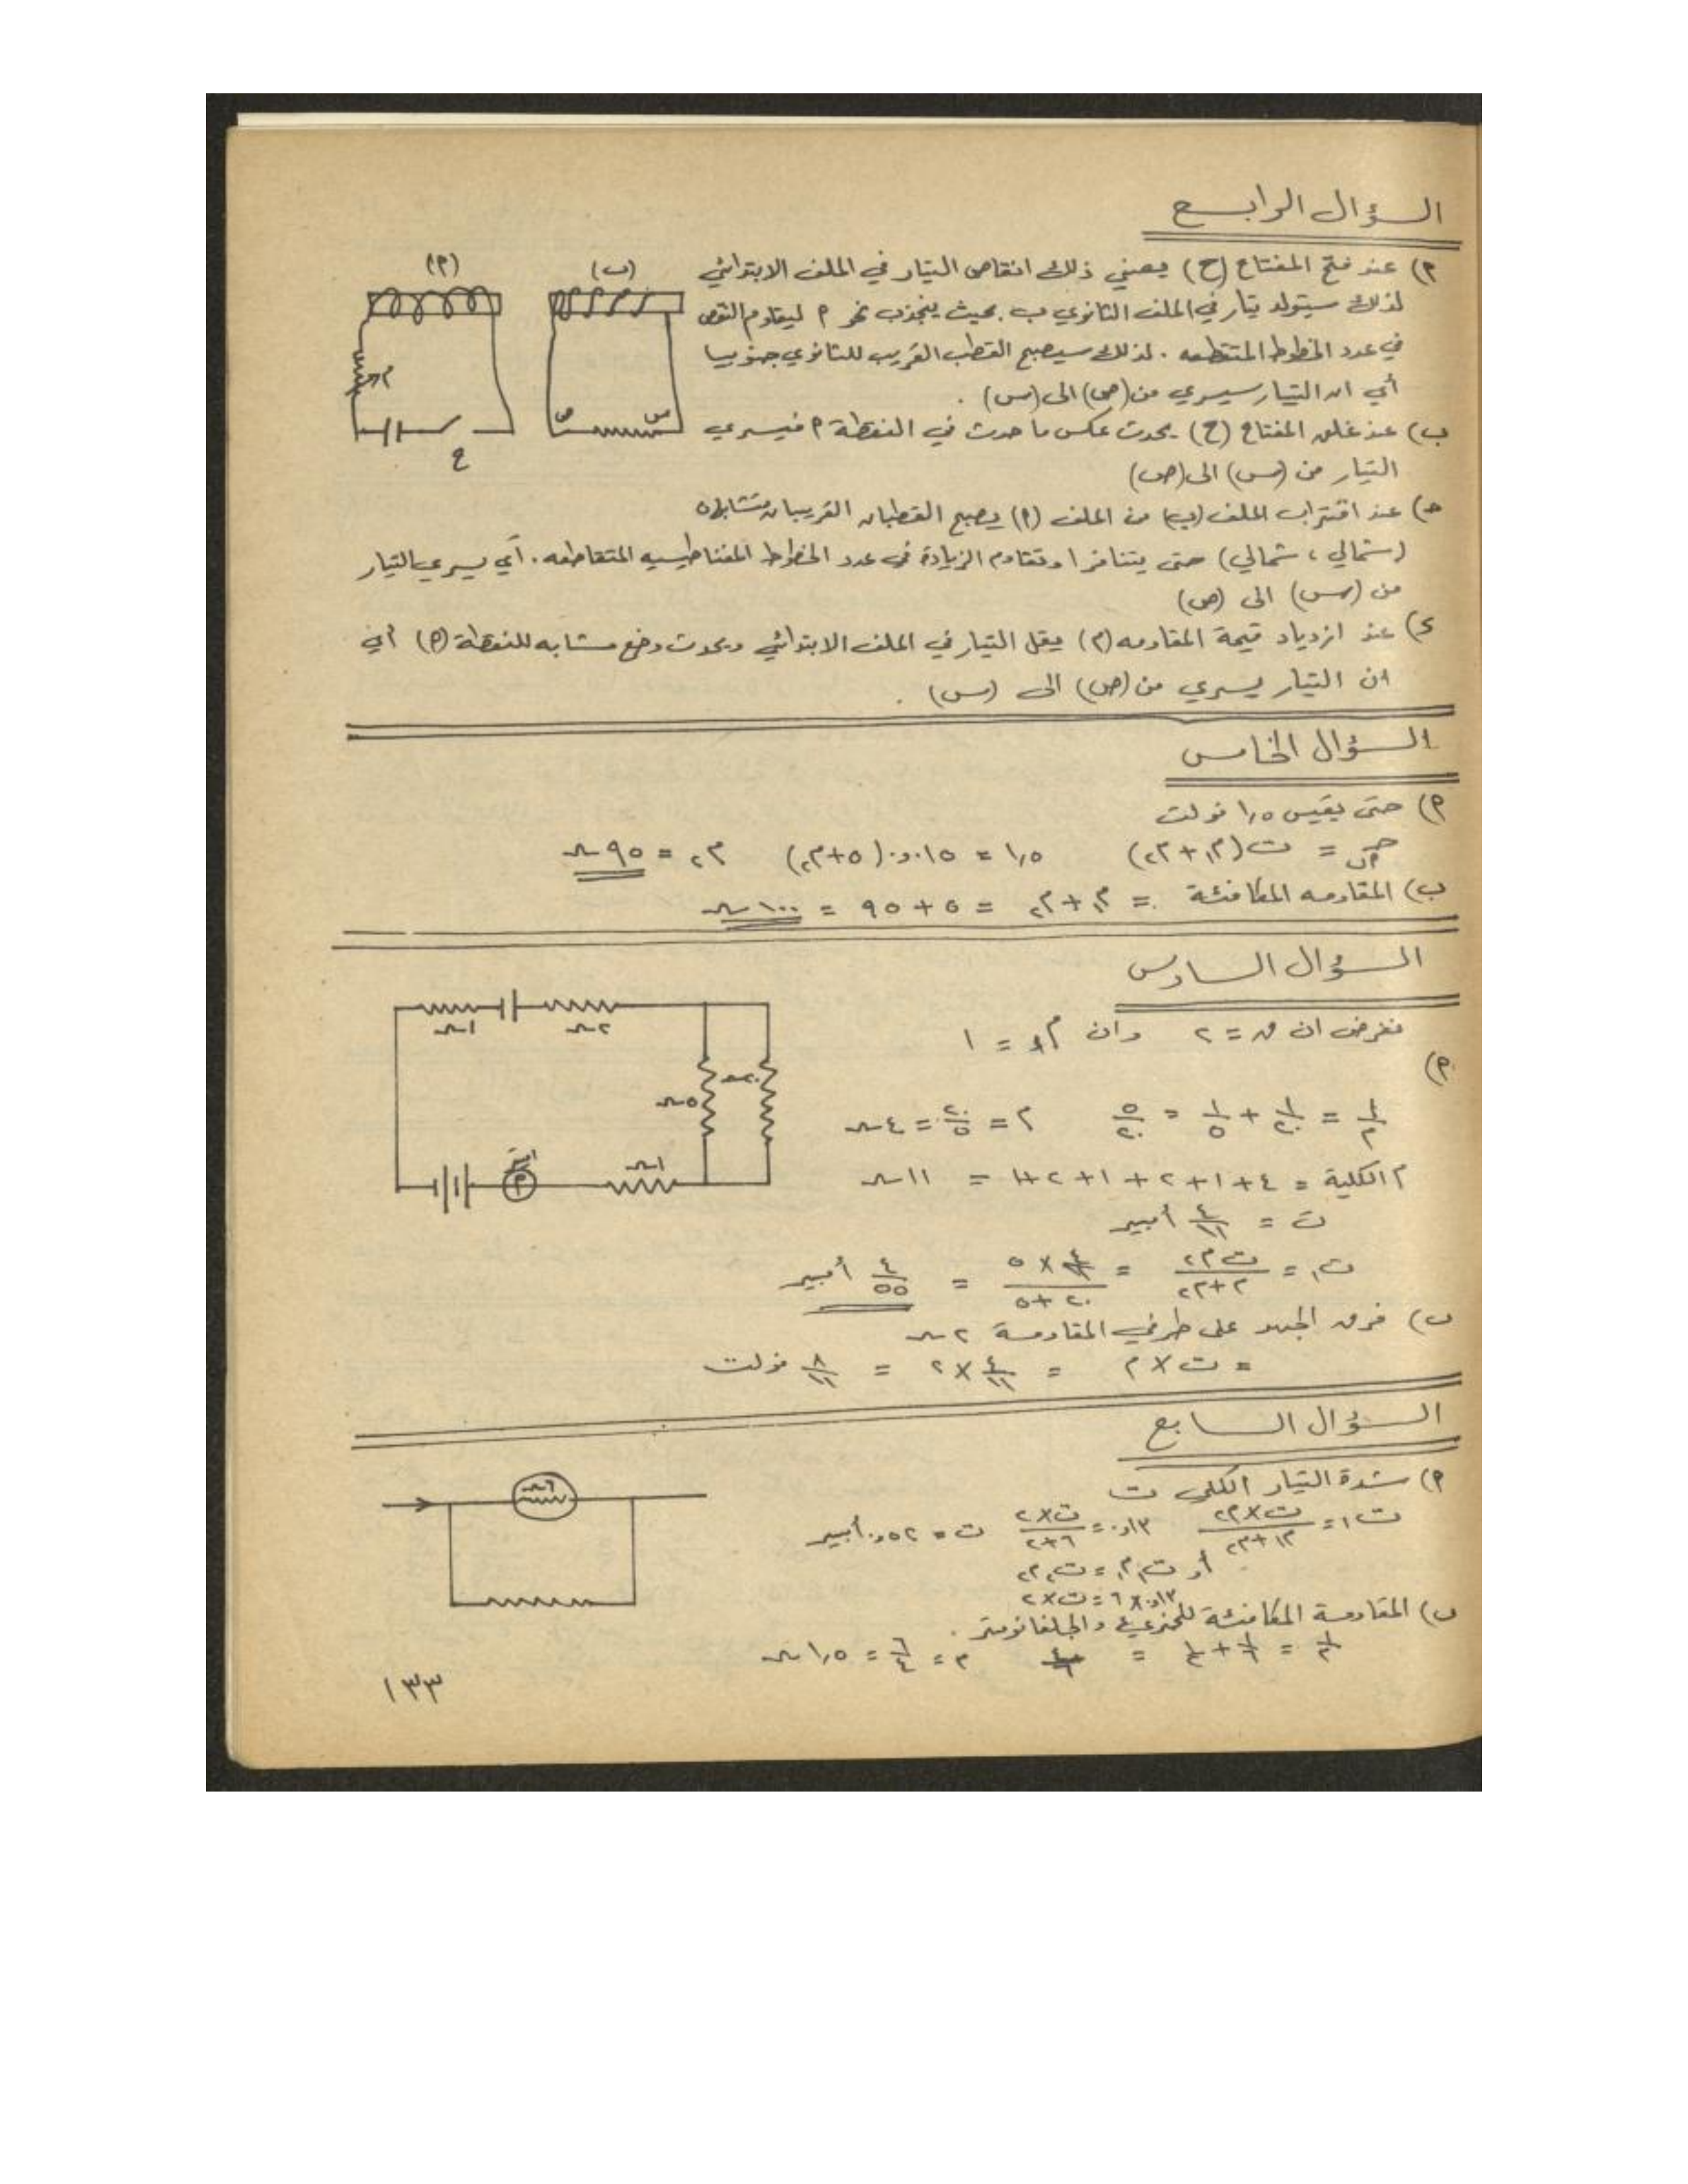 السؤال الرابع
(م) (ب)
م) عند فتح المفتاح (ح) يعني ذلك انقاص التيار في الملف الابتدائي
لذلك سيتولد تيار في الملف الثانوي ب بحيث ينجذب نحو م ليقاوم النقص
في عدد الخطوط المتقطعه . لذلك سيصبح القطب القريب للثانوي جنوبيا
أي ان التيار سيسري من (ص) الى (س) .
م
ص س
ح
ب) عند غلق المفتاح (ح) يحدث عكس ما حدث في النقطة م فيسري
التيار من (س) الى (ص)
حـ) عند اقتراب الملف (ب) من الملف (م) يصبح القطبان القريبان متشابهان
(شمالي ، شمالي) حتى يتنافرا وتقاوم الزيادة في عدد الخطوط المغناطيسيه المتقاطعه . أي يسري التيار
من (س) الى (ص)
د) عند ازدياد قيمة المقاومه (م) يقل التيار في الملف الابتدائي ويحدث وضع مشابه للنقطة (م) أي
ان التيار يسري من (ص) الى (س) .
السؤال الخامس
م) حتى يقيس ١,٥ فولت
= ت (م١ + م٢) ١,٥ = ٠,٠١٥ (٥ + م٢) م٢ = ٩٥ Ω
ب) المقاومه المكافئة = م١ + م٢ = ٥ + ٩٥ = ١٠٠ Ω
السؤال السادس
نفرض ان ق = ٢ وان م = ١
١Ω ٢Ω
م)
٥Ω ٢٠Ω
١/م = ١/٢٠ + ١/٥ = ٥/٢٠ م = ٢٠/٥ = ٤ Ω
١Ω
م الكلية = ٤ + ١ + ٢ + ١ + ٢ + ١ = ١١ Ω
ت = ٤/١١ أمبير
ت١ = ت م٢ / م + م٢ = ٤/١١ × ٥ / ٢٠ + ٥ = ٤/٥٥ أمبير
ب) فرق الجهد على طرفي المقاومة ٢ Ω
= ت × م = ٤/١١ × ٢ = ٨/١١ فولت
السؤال السابع
م) شدة التيار الكلي ت
٦Ω
ت١ = ت × م٢ / م١ + م٢ ٠,٠١٣ = ت × ٢ / ٦ + ٢ ت = ٠,٠٥٢ أمبير
أو ت١ م١ = ت٢ م٢
٠,٠١٣ × ٦ = ت × ٢
ب) المقاومة المكافئة للمجزيء والجلفانومتر .
١/م = ١/٦ + ١/٢ = ٤/٦ م = ٦/٤ = ١,٥ Ω
١٣٣